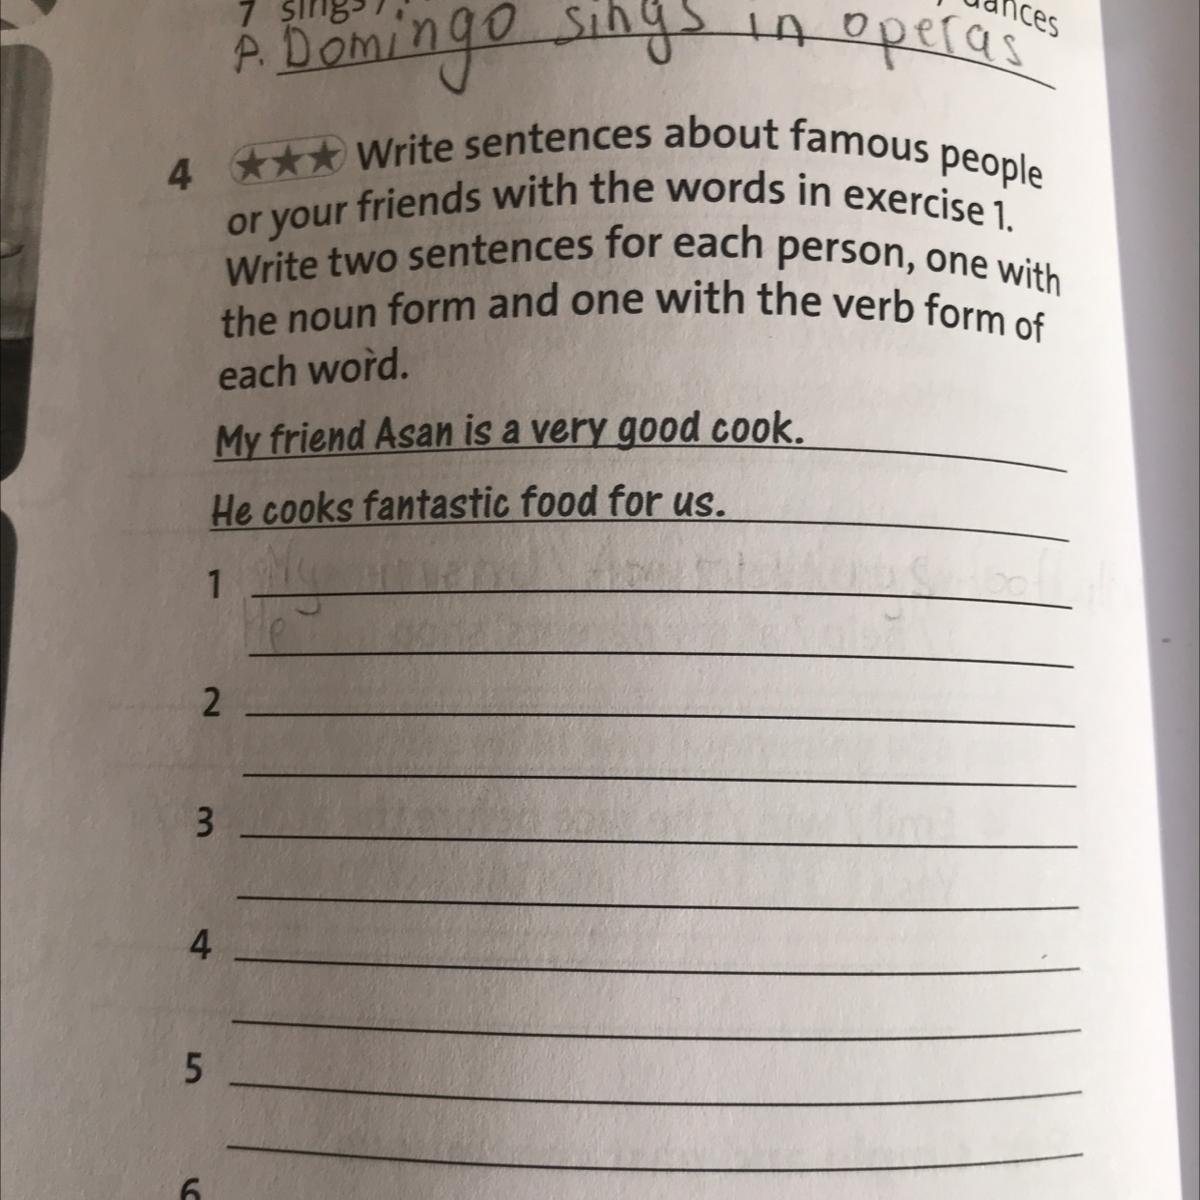 7 sings
dances
P. Domingo sings in operas
4 ★★★ Write sentences about famous people
or your friends with the words in exercise 1.
Write two sentences for each person, one with
the noun form and one with the verb form of
each word.
My friend Asan is a very good cook.
He cooks fantastic food for us.
1 My friend
He
2
3
4
5
6